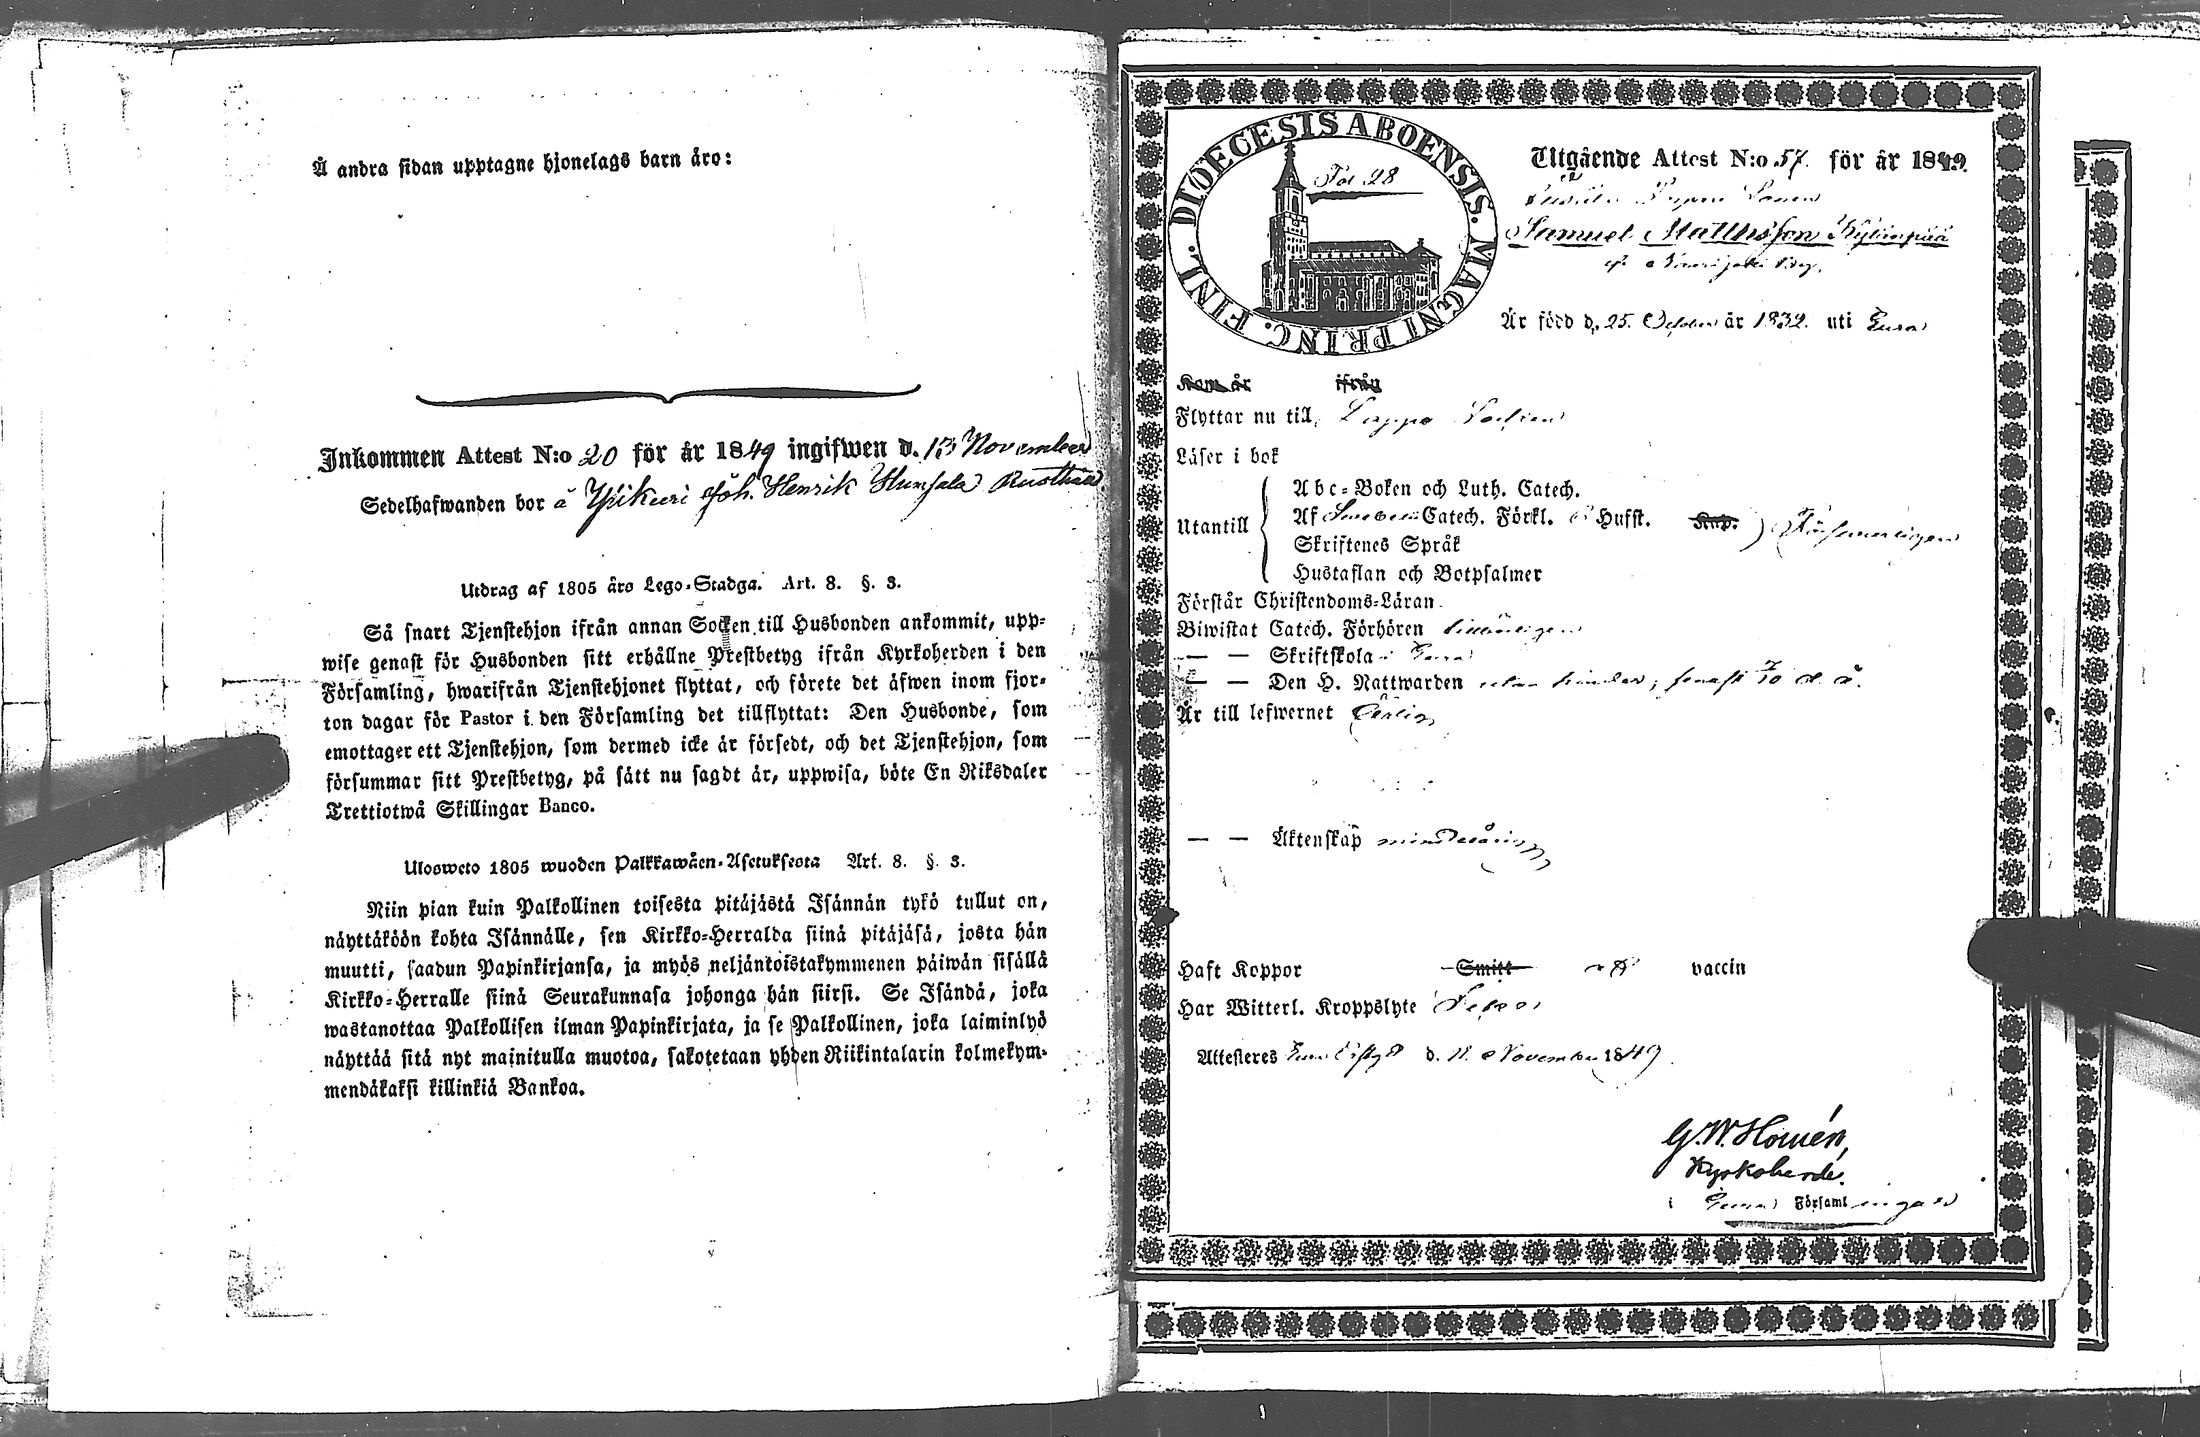 Å andra sidan upptagne hjonelags barn äro:
Inkommen Attest N:o 20 för år 1849 ingifwen d. 13 November
Sedelhafwanden bor å Ypikuri Joh. Henrik Humsala Rusthåll
Utdrag af 1805 års Lego-Stadga. Art. 8. §. 3.
Så snart Tjenstehjon ifrån annan Socken till Husbonden ankommit, upp-
wise genast för Husbonden sitt erhållne Prestbetyg ifrån Kyrkoherden i den
Församling, hwarifrån Tjenstehjonet flyttat, och förete det äfwen inom fjor-
ton dagar för Pastor i den Församling det tillflyttat: Den Husbonde, som
emottager ett Tjenstehjon, som dermed icke är försedt, och det Tjenstehjon, som
försummar sitt Prestbetyg, på sätt nu sagdt är, uppwisa, böte En Riksdaler
Trettiotwå Skillingar Banco.
Ulosweto 1805 wuoden Palkkawäen-Asetuksesta Art. 8. §. 3.
Niin pian kuin Palkollinen toisesta pitäjästä Isännän tykö tullut on,
näyttäköön kohta Isännälle, sen Kirkko-Herralda siinä pitäjäsä, josta hän
muutti, saadun Papinkirjansa, ja myös neljäntoistakymmenen päiwän sisällä
Kirkko-Herralle siinä Seurakunnasa johonga hän siirsi. Se Isändä, joka
wastanottaa Palkollisen ilman Papinkirjata, ja se Palkollinen, joka laiminlyö
näyttää sitä nyt mainitulla muotoa, sakotetaan yhden Riikintalarin kolmekym-
mendäkaksi killinkiä Bankoa.
DIOECESIS ABOENSIS. MAGNI PRINC. FINL.
Fol 28
Utgående Attest N:o 57. för år 1849.
Samuel Matthsson Kylänpää
Är född d. 25. October år 1832. uti Eura
Kom år ifrån
Flyttar nu till Lappo Socken
Läser i bok
Utantill
Abc-Boken och Luth. Catech.
Af Catech. Förkl. Hufst. Kap.
Skriftenes Språk
Hustaflan och Botpsalmer
Förstår Christendoms-Läran
Biwistat Catech. Förhören
— — Skriftskola i Eura
— — Den H. Nattwarden utan hinder, senast d. å.
Är till lefwernet Ärlig
— — Äktenskap minderårig
Haft Koppor Smitt vaccin
Har Witterl. Kroppslyte
Attesteres Eura d. 11. November 1849.
G. W. Homén,
Kyrkoherde.
i Eura Församlingar